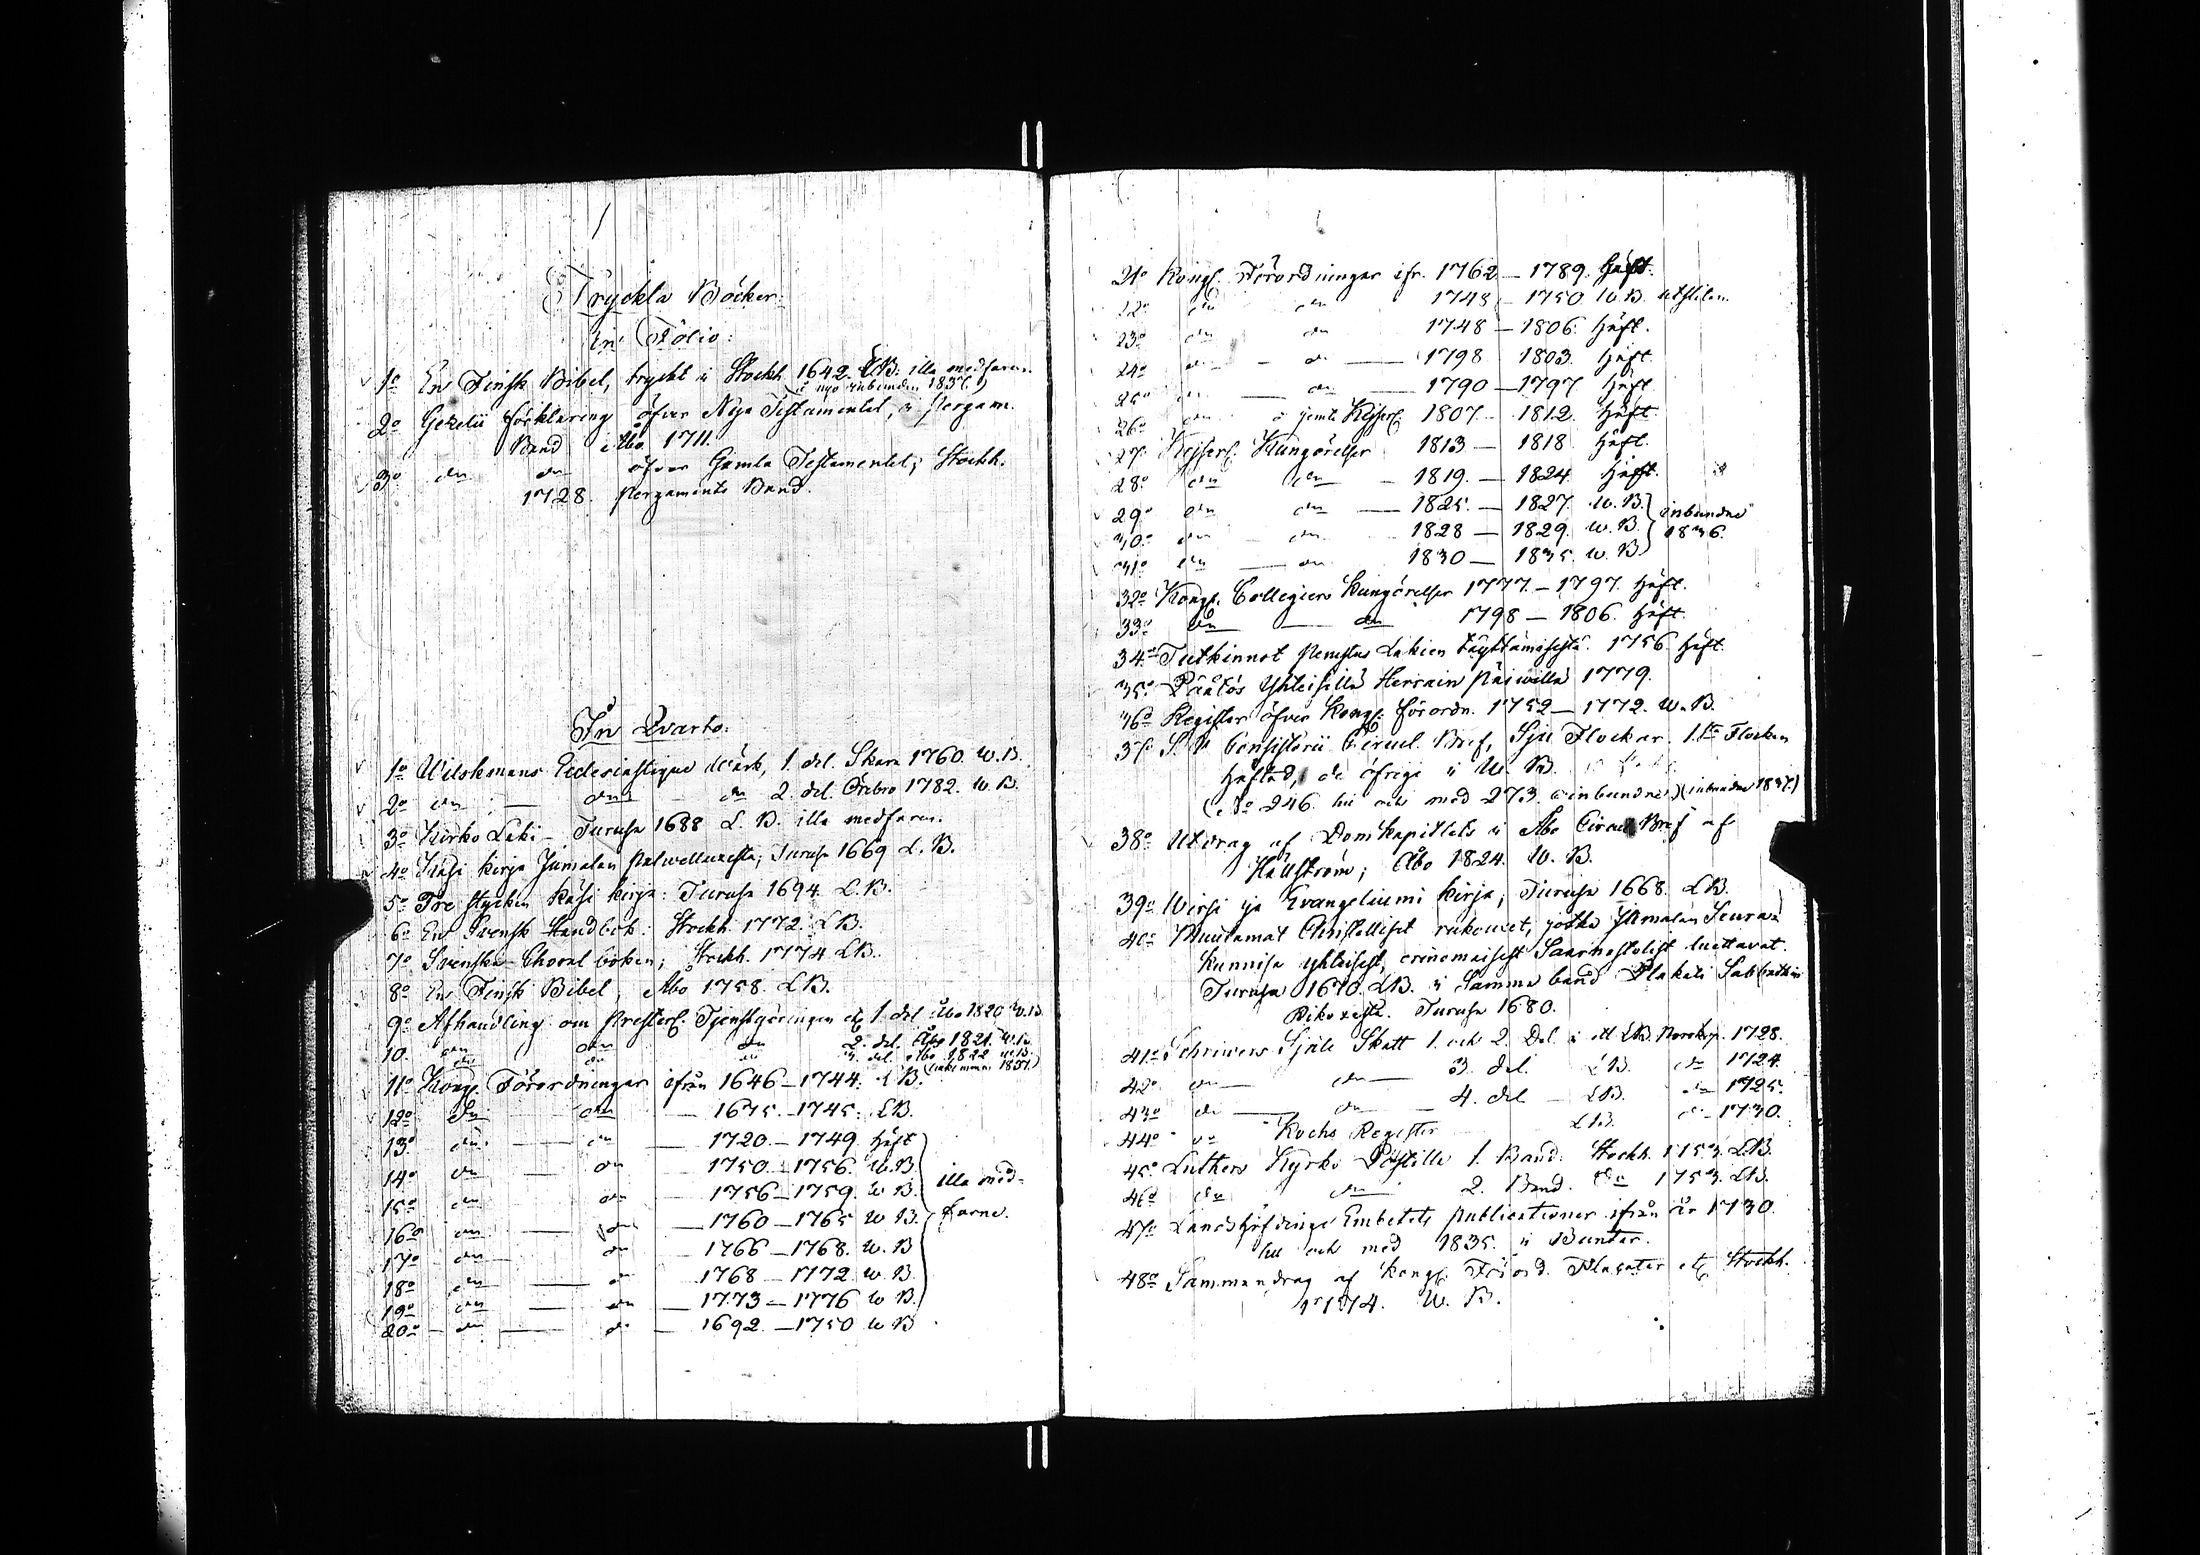 Tryckta Böcker.
In Folio:
1o En Finsk Bibel, tryckt i Stockh. 1642. LB. illa medfaren.
(å nyo inbunden 1837.)
2o Gezelii förklaring öfver Nya Testamentet, i Pergam.
Band Åbo 1711.
3o do do öfver Gamla Testamentet, Stockh.
1728. Pergaments Band.
In Qvarto.
1o Wilskmans Ecclesiastique Wärk, 1. del. Skara 1760. W.B.
2o do — do do 2. del. Örebro 1782. W.B.
3o Kirko Laki – Turusa 1688 L.B. illa medfaren.
4o Käsi kirja Jumalan Palweluxesta, Turusa 1669 L.B.
5o Tre stycken Käsi kirja: Turusa 1694. L.B.
6o En Svensk Handbok: Stockh. 1772. LB.
7o Svenska Choral boken; Stockh. 1774 LB.
8o En Finsk Bibel, Åbo 1758. LB.
9o Afhandling om Presterl. Tjenstgöringen etc 1. del Åbo 1820 W.B.
10. do do do 2. del. Åbo 1821. W.B.
do do do 3. del. Åbo 1822 W.B.
11o Kongl. Förordningar ifrån 1646–1744. LB.
12o do do — 1675.–1745. LB.
13o do — do — 1720.–1749. Häft
14o do — do 1750.–1756. W.B.
15o do do — 1756–1759. W B. illa med-
16o do — do — 1760–1765 W B. farne.
17o do do — 1766–1768. W. B
18o do — do 1768–1772. W. B.
19o do — do — 1773–1776 W B.
20o – do — do — 1692.–1750 W B
21o Kongl. Förordningar ifr. 1762–1789. Häft.
22o do do 1748–1750 W.B.
23o do do 1748–1806. Häft.
24o do – do — 1798 1803. Häft
25o do — do — 1790–1797 Häft
26o do o jemte Kejserl. 1807.–1812. Häft
27o Kejserl. Kungörelser 1813–1818. Häft.
28o do do – 1819.–1824. Häft.
29o do do — 1825.–1827. W.B. inbundne
30o do – do 1828–1829. W.B. 1836.
31o do — do 1830–1835. W.B
32o Kongl. Collegiers Kungörelser 1777.–1797. Häft.
33o do — do 1798–1806. Häft.
34o Tutkinnot Perustus Lakien täyttämisestä. 1756. Häft.
35o Päätös Yhteisillä Herrain Päiwillä 1779.
36o Register öfver Kongl. förordn. 1752–1772. W.B.
37o S. V. Consistorii Circul. Bref, Sju Flockar. 1.sta Flocken
Häftad, de öfriga i W. B.
(No 246. till och med 273. oinbundne) (inbundne 1837.)
38o Utdrag af Domkapitlets i Åbo Circul. Bref af
Hällström; Åbo 1824. W. B.
39o Wirsi ja Evangeliumi kirja; Turusa 1668. LB.
40o Muutamat Christelliset rukouxet, jotka Jumalan Seura-
kunnisa yhteisest, erinomaisest Saarnastolist luettavat.
Turusa 1670. LB. i Samma band Plakati Sabbathin
Rikoxesta. Turusa 1680.
41o Schrivers Själa Skatt 1. och 2. Del. i ett LB. Norrkp. 1728.
42o do — do — 3. del. LB. do 1724.
43o do — do – 4. del – LB. do 1725.
44o do Kochs Register LB. do 1730.
45o Luthers Kyrko Postilla 1. Band. Stockh. 1753. LB.
46o do do 2. Band. do 1753. LB.
47o Landshöfdinge Embetets publicationer ifrån år 1730.
till och med 1835. i Buntar.
48o Sammandrag af Kongl. Förord. Placater etc Stockh.
1774. W. B.